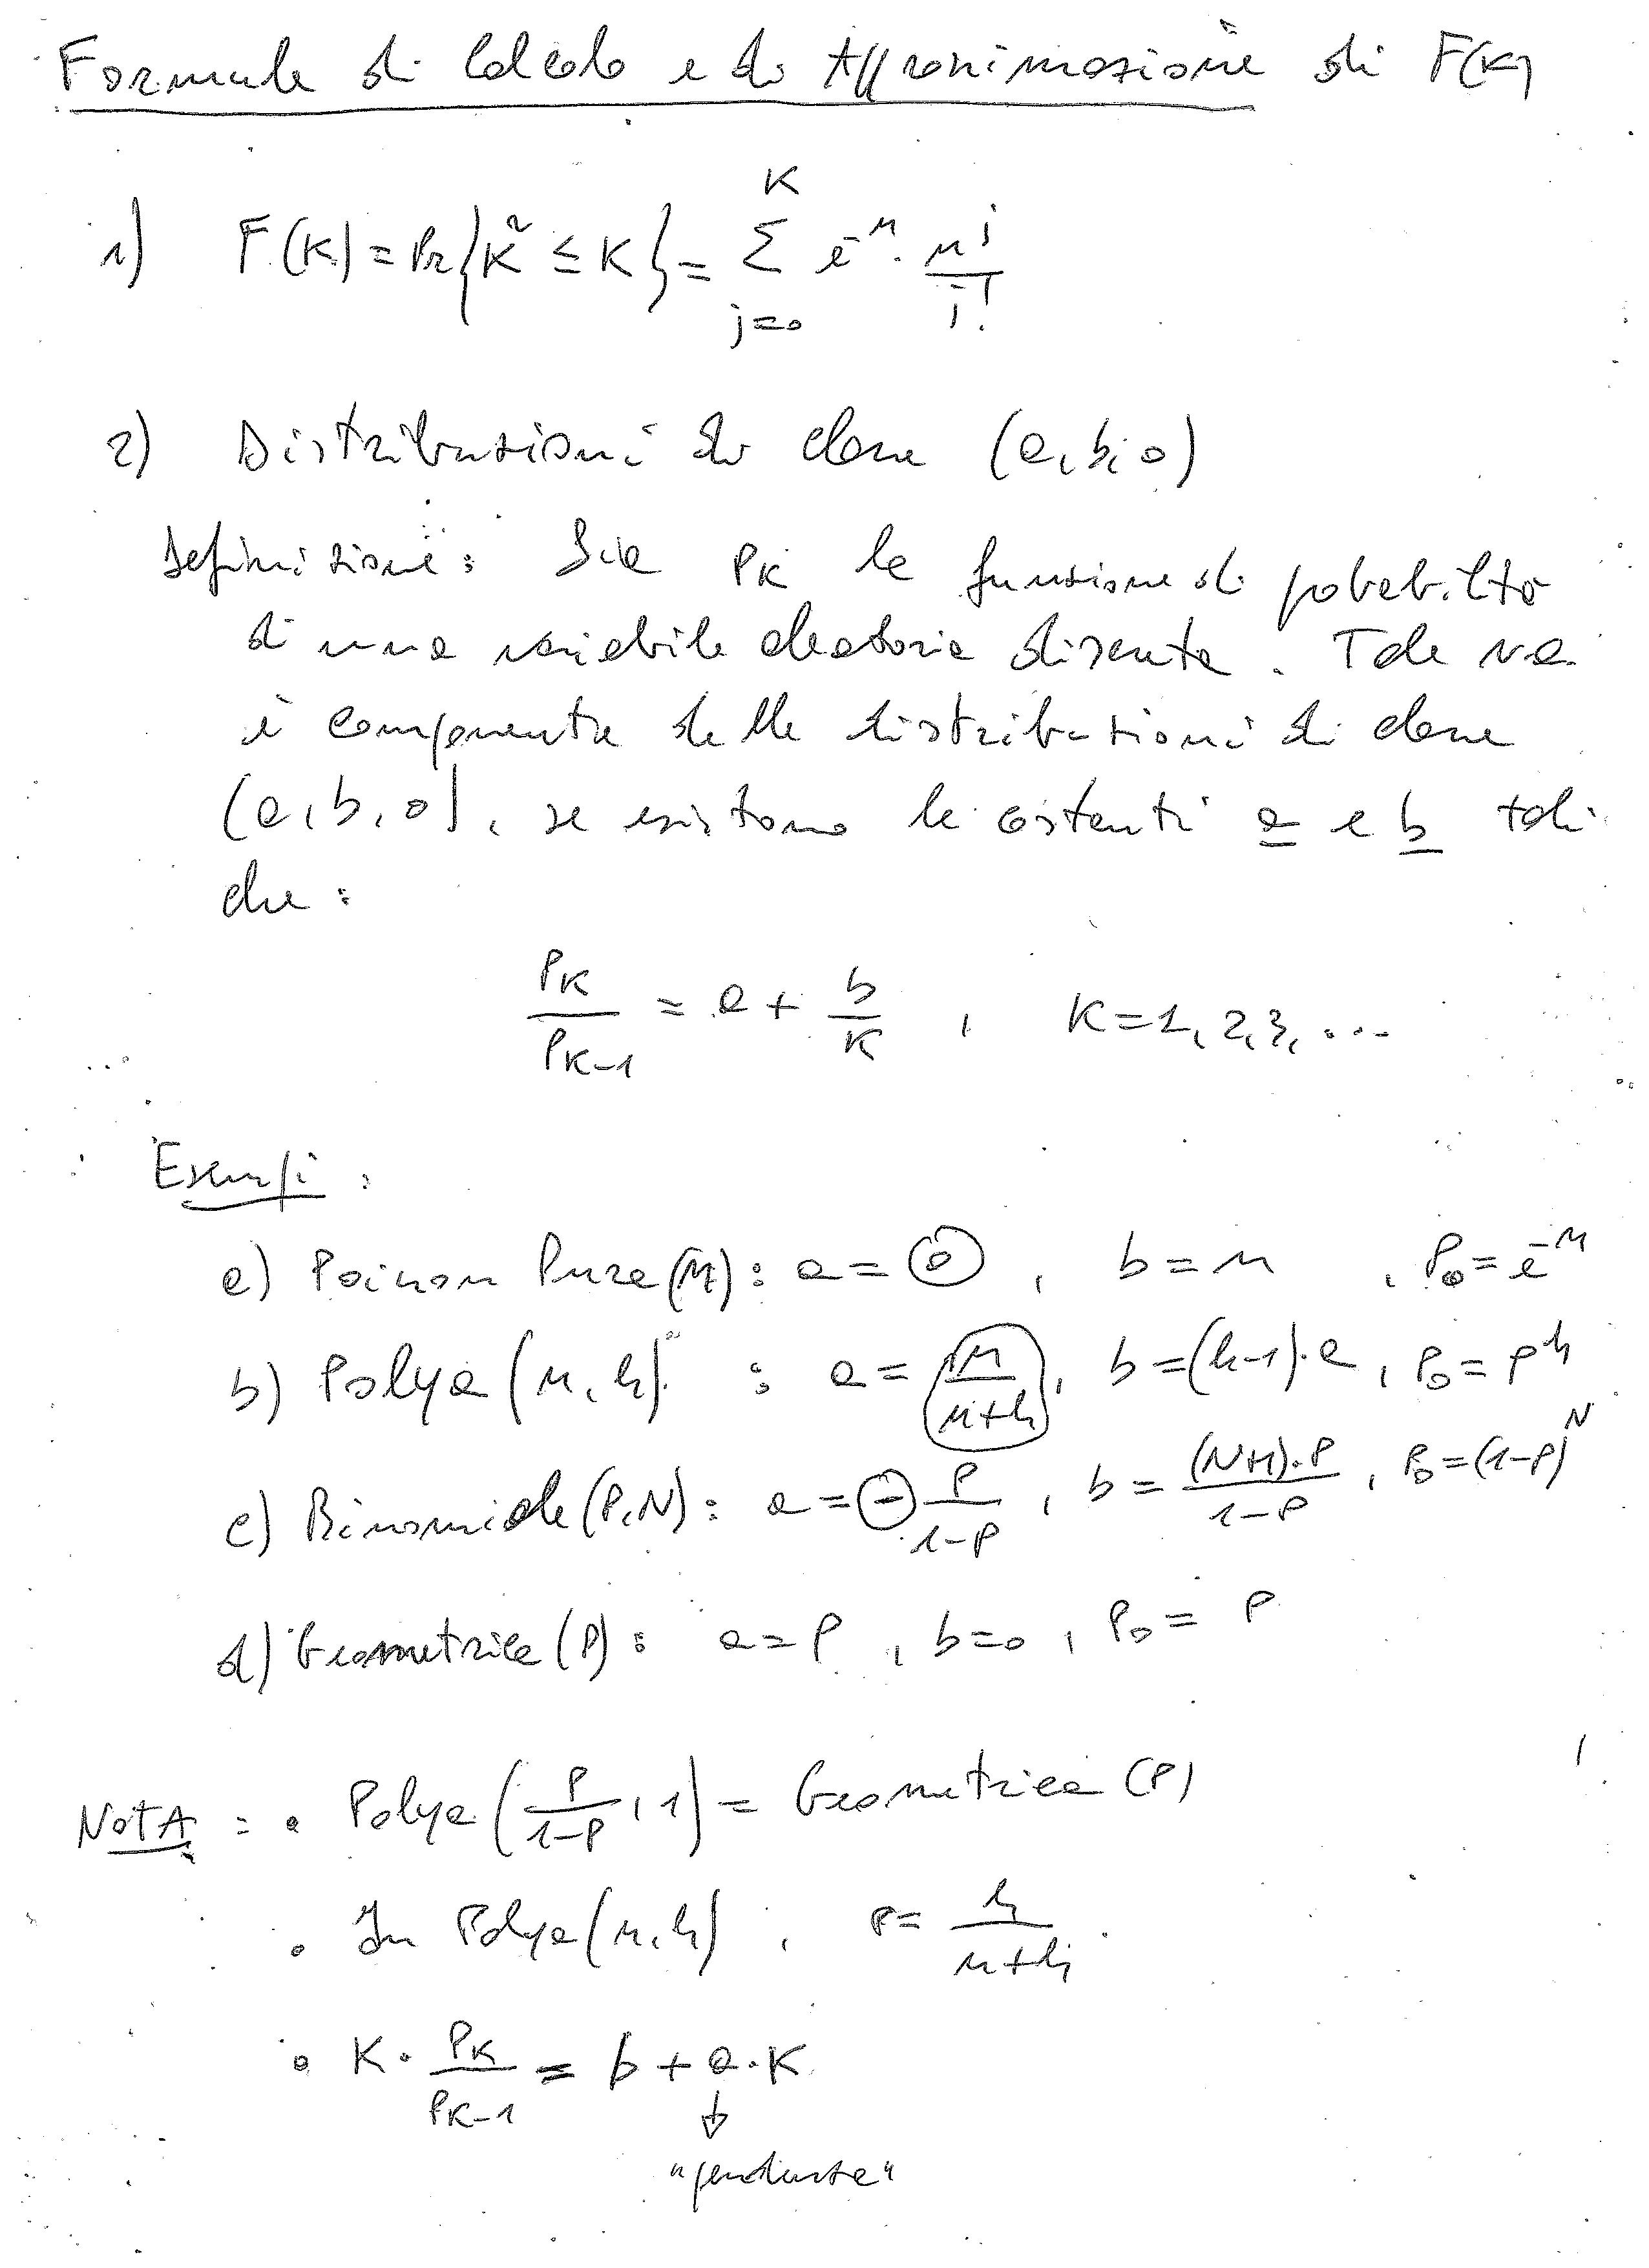 Formule di Calcolo e di Approssimazione di F(K)
1) F(K) = Pr{K̃ ≤ K} = Σ_{j=0}^{K} e^{-n} · n^j / j!
2) Distribuzioni di classe (a, b, 0)
Definizione: Sia P_K la funzione di probabilità
di una variabile aleatoria discreta. Tale v.a.
è componente delle distribuzioni di classe
(a, b, 0), se esistono le costanti a e b tali
che:
P_K / P_{K-1} = a + b/K , K = 1, 2, 3, ...
Esempi:
a) Poisson Pura (n): a = 0 , b = n , P_0 = e^{-n}
b) Polya (n, h) : a = n/(n+h), b = (h-1)·a , P_0 = p^h
c) Binomiale (P, N): a = - P/(1-P) , b = (N+1)·P/(1-P) , P_0 = (1-P)^N
d) Geometrica (P): a = P , b = 0 , P_0 = P
NOTA: • Polya (P/(1-P), 1) = Geometrica (P)
• In Polya (n, h) , P = h/(n+h)
• K · P_K / P_{K-1} = b + a·K
↓
"pendenza"